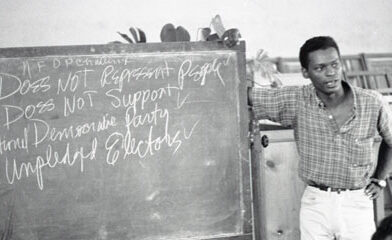 MFDP Challenge
Does Not Represent People
Does Not Support
Democratic Party
Unpledged Electors